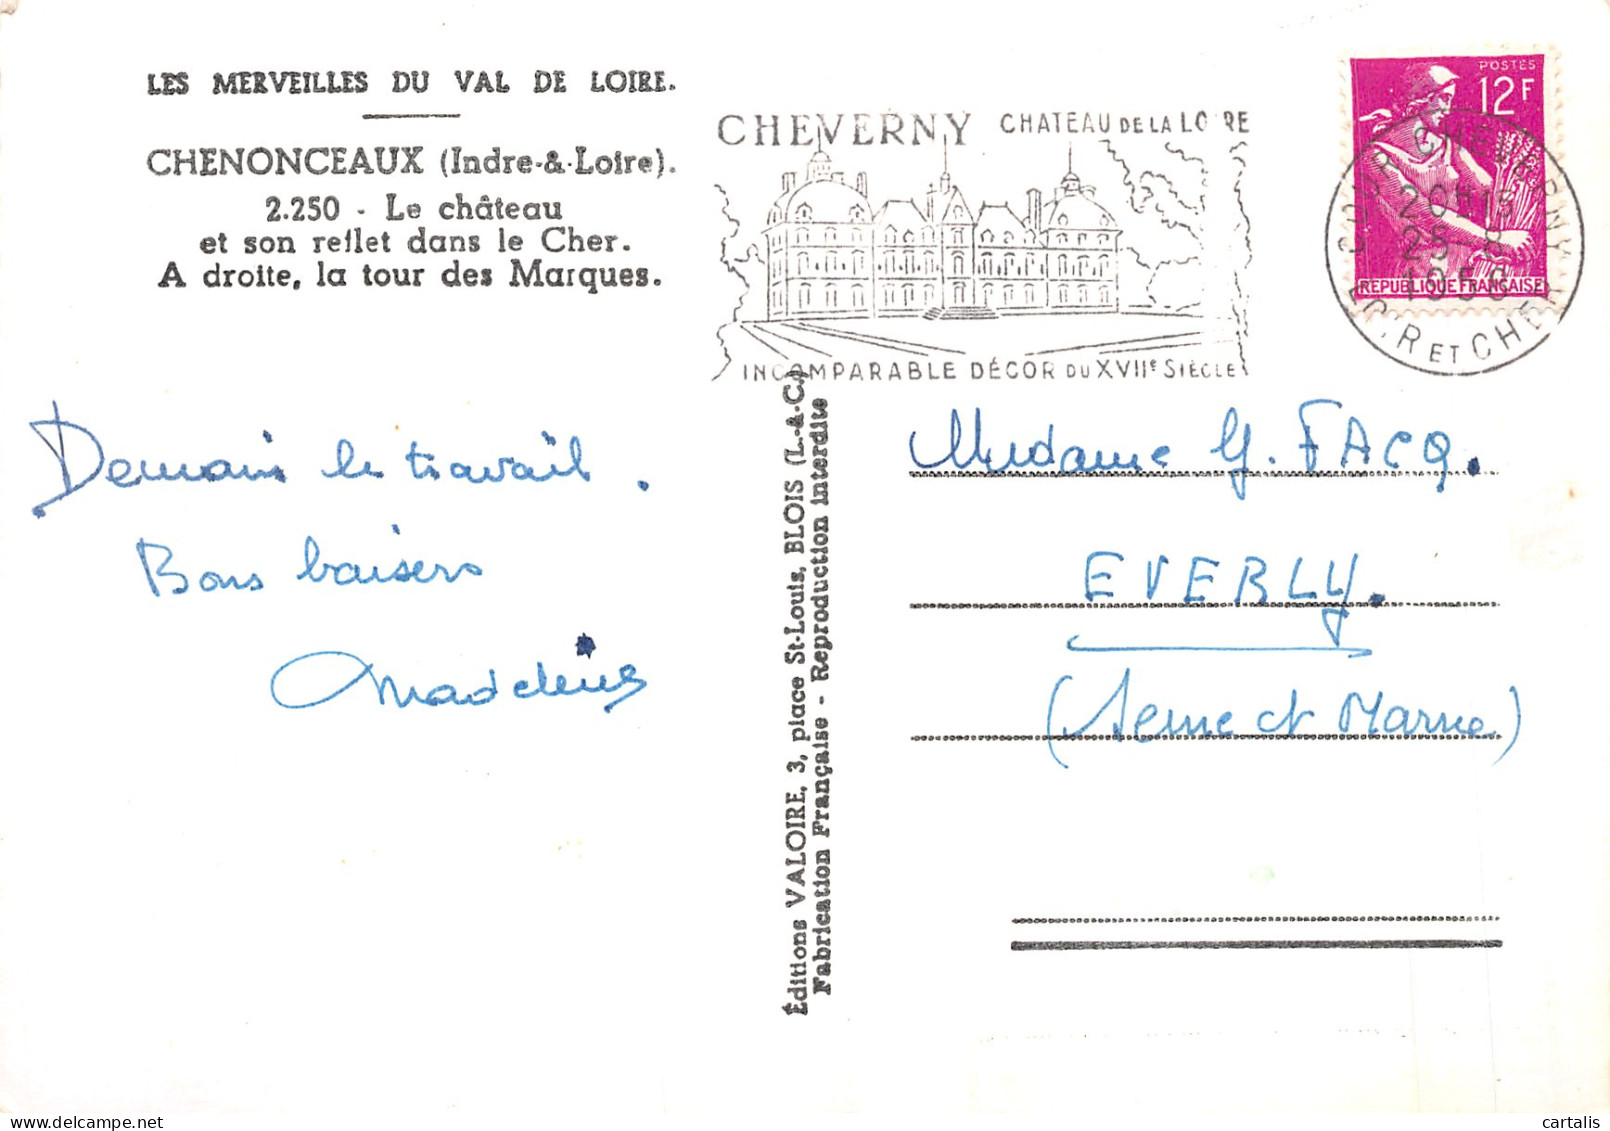 LES MERVEILLES DU VAL DE LOIRE.
CHENONCEAUX (Indre-&-Loire).
2.250 - Le château
et son reflet dans le Cher.
A droite, la tour des Marques.
CHEVERNY CHATEAU DE LA LOIRE
INCOMPARABLE DÉCOR DU XVIIe SIÈCLE
POSTES
12F
REPUBLIQUE FRANÇAISE
COUR CHEVERNY
25-8
LOIR ET CHER
Demain le travail.
Bons baisers
Madeleine
Éditions VALOIRE, 3, place St-Louis, BLOIS (L.-&-C.)
Fabrication Française - Reproduction interdite
Madame G. FACQ.
EVERLY.
(Seine et Marne)
cartalis